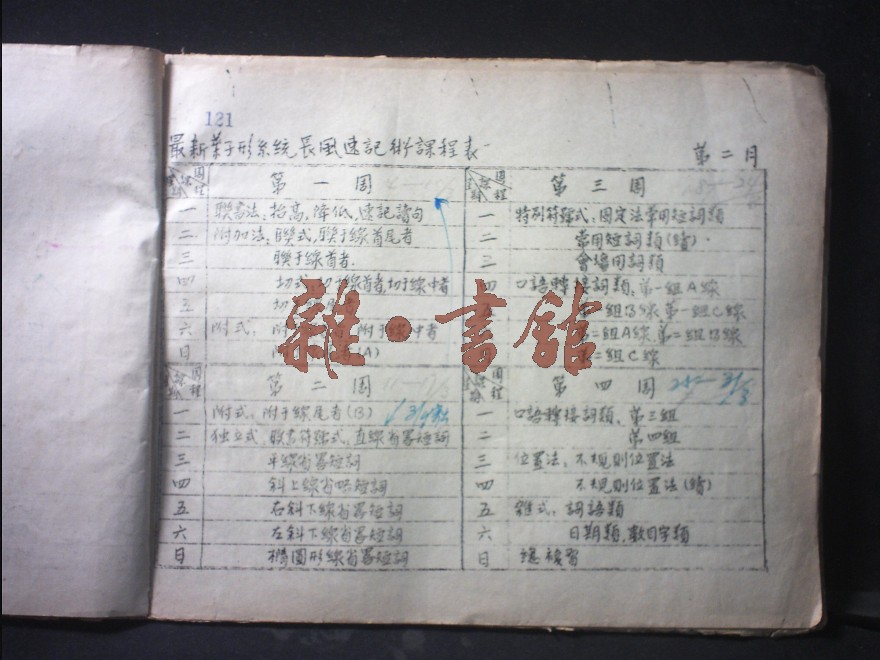 121
最新葉子形系統長風速記術課程表
第二月
週 課程
第一周
一 聯書法:抬高,降低,速記讀句
二 附加法:聯式,聯于線首尾者
三 聯于線首者.
四 切式,切于線首者,切于線中者
五 切
六 附式: 附 附于線中者
日 附 (A)
第二周
一 附式:附于線尾者(B)
二 独立式,聯書符號式,直線省畧短詞
三 平線省畧短詞
四 斜上線省畧短詞
五 右斜下線省畧短詞
六 左斜下線省畧短詞
日 橢圓形線省畧短詞
第三周
一 特別符號式:固定法常用短詞類
二 常用短詞類(續)
三 會場用詞類
四 口語轉接詞類,第一組A線
五 第一組B線 第一組C線
六 第二組A線,第二組B線
日 第二組C線
第四周
一 口語轉接詞類,第三組
二 第四組
三 位置法:不規則位置法
四 不規則位置法(續)
五 雜式:詞語類
六 日期類,數目字類
日 總複習
雜·書館